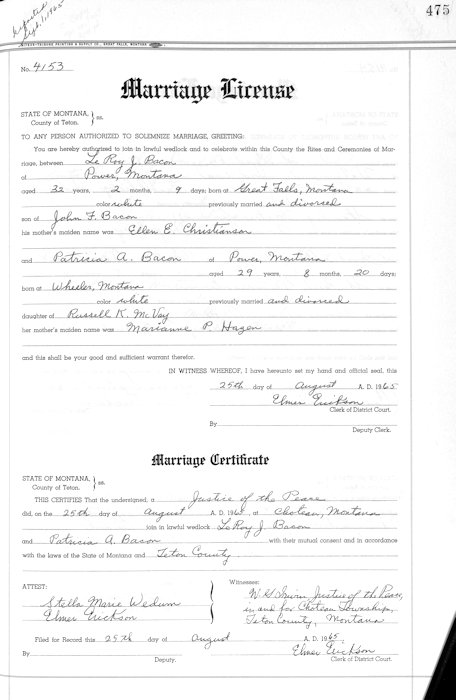 Reported
Sept. 1, 1965
475
TRIBUNE PRINTING & SUPPLY CO., GREAT FALLS, MONTANA
No. 4153
Marriage License
STATE OF MONTANA, } ss.
County of Teton.
TO ANY PERSON AUTHORIZED TO SOLEMNIZE MARRIAGE, GREETING:
You are hereby authorized to join in lawful wedlock and to celebrate within this County the Rites and Ceremonies of Mar-
riage, between Le Roy J. Bacon
of Power, Montana
aged 32 years, 2 months, 9 days; born at Great Falls, Montana
color white previously married and divorced
son of John F. Bacon
his mother's maiden name was Ellen E. Christianson
and Patricia A. Bacon of Power, Montana
aged 29 years, 8 months, 20 days;
born at Wheeler, Montana
color white previously married and divorced
daughter of Russell K. McVay
her mother's maiden name was Marianne P Hazen
and this shall be your good and sufficient warrant therefor.
IN WITNESS WHEREOF, I have hereunto set my hand and official seal, this
25th day of August A. D. 1965
Elmer Erickson
Clerk of District Court.
By
Deputy Clerk.
Marriage Certificate
STATE OF MONTANA, } ss.
County of Teton.
THIS CERTIFIES That the undersigned, a Justice of the Peace
did, on the 25th day of August A. D. 1965 at Choteau, Montana
join in lawful wedlock LeRoy J Bacon
and Patricia A. Bacon with their mutual consent and in accordance
with the laws of the State of Montana and Teton County
ATTEST:
Stella Marie Wedum
Elmer Erickson
Witnesses:
Justice of the Peace,
in and for Choteau Township,
Teton County, Montana
Filed for Record this 25th day of August A. D. 1965.
Elmer Erickson
By
Deputy.
Clerk of District Court.